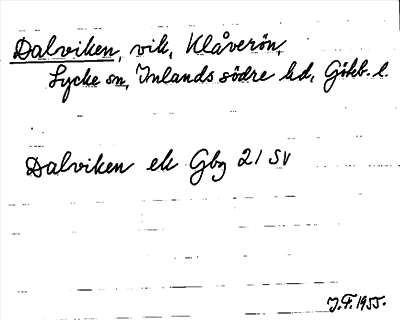 Dalviken, vik, Klåverön,
Lycke sn, Inlands södre hd, Götb. l.
Dalviken ek Gbg 21 SV
J.F. 1955.